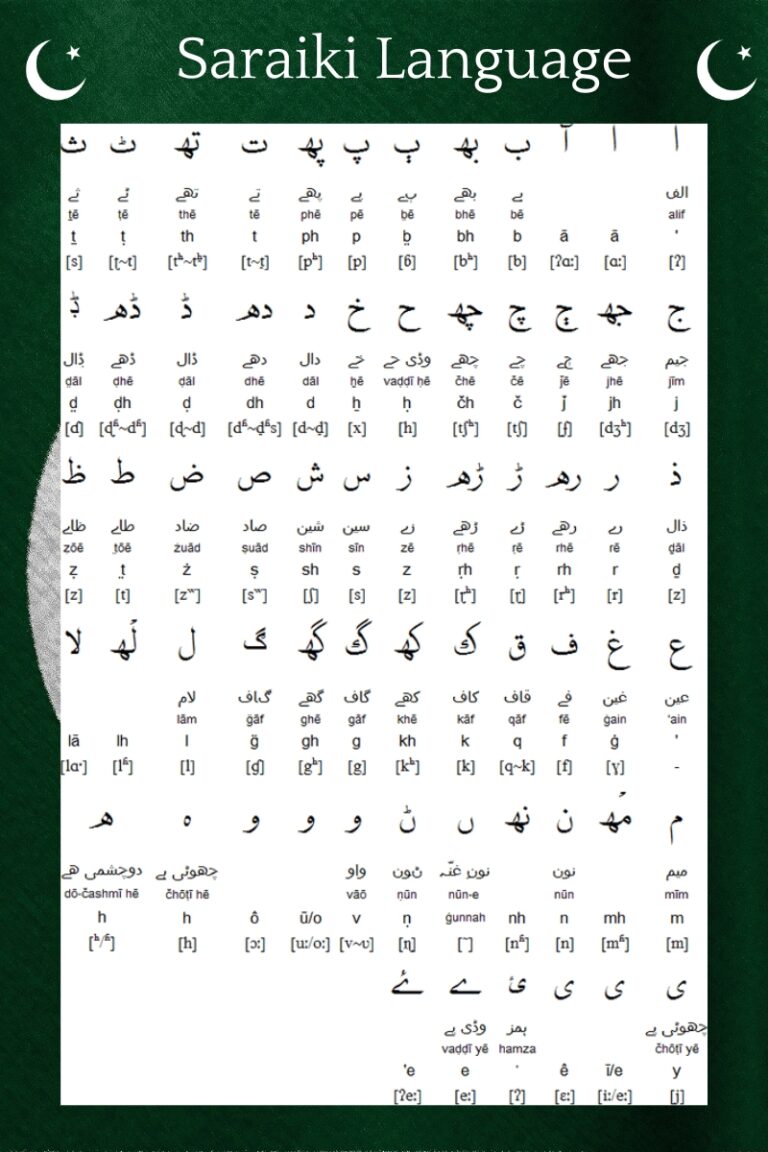 Saraiki Language
ا ا آ ب بھ ٻ پ پھ ت تھ ٹ ث
الف بے بھے ٻے پے پھے تے تھے ٹے ثے
ṯē ṭē thē tē phē pē b̤ē bhē bē alif
ṯ ṭ th t ph p b̤ bh b ā ā '
[s] [ʈ~t] [tʰ~t̪ʰ] [t~t̪] [pʰ] [p] [ɓ] [bʰ] [b] [ʔɑː] [ɑː] [ʔ]
ج جھ ڄ چ چھ ح خ د دھ ڈ ڈھ ݙ
جیم جھے ڄے چے چھے وڈی حے خے دال دھے ڈال ڈھے ݙال
d̤āl ḍhē ḍāl dhē dāl ẖē vaḍḍī ḥē čhē čē j̈ē jhē jīm
d̤ ḍh ḍ dh d ẖ ḥ čh č j̈ jh j
[ɗ] [ɖʱ~dʱ] [ɖ~d] [dʱ~d̪ʱs] [d~d̪] [x] [h] [tʃʰ] [tʃ] [ʄ] [dʒʰ] [dʒ]
ذ ر رھ ڑ ڑھ ز س ش ص ض ط ظ
ذال رے رھے ڑے ڑھے زے سین شین صاد ضاد طاے ظاے
ẓōē t̤ōē żuād ṣuād shīn sīn zē ṛhē ṛē rhē rē ḏāl
ẓ t̤ ż ṣ sh s z ṛh ṛ rh r ḏ
[z] [t] [zʷ] [sʷ] [ʃ] [s] [z] [ɽʰ] [ɽ] [rʰ] [r] [z]
ع غ ف ق ك کھ گ گھ ڳ ل لُھ لا
عین غین فے قاف کاف کھے گاف گھے ڳاف لام
lām g̈āf ghē gāf khē kāf qāf fē ġain 'ain
lā lh l g̈ gh g kh k q f ġ '
[lɑˑ] [lʱ] [l] [ɠ] [gʰ] [g] [kʰ] [k] [q~k] [f] [ɣ] -
م مُھ ن نھ ں ݨ و و و ہ ھ
میم نون نونِ غنّہ ݨون واو چھوٹی ہے دوچشمی ھے
dō-čashmī hē čhōṭī hē vāō ṇūn nūn-e nūn mīm
h h ô ū/o v ṇ ġunnah nh n mh m
[ʰ/ʱ] [h] [ɔː] [uː/oː] [v~ʋ] [ɳ] [˜] [nʱ] [n] [mʱ] [m]
ی ی ی ئ ے ۓ
چھوٹی یے ہمز وڈی یے
vaḍḍī yē hamza čhōṭī yē
'e e ' ê ī/e y
[ʔeː] [eː] [ʔ] [ɛː] [iː/eː] [j]